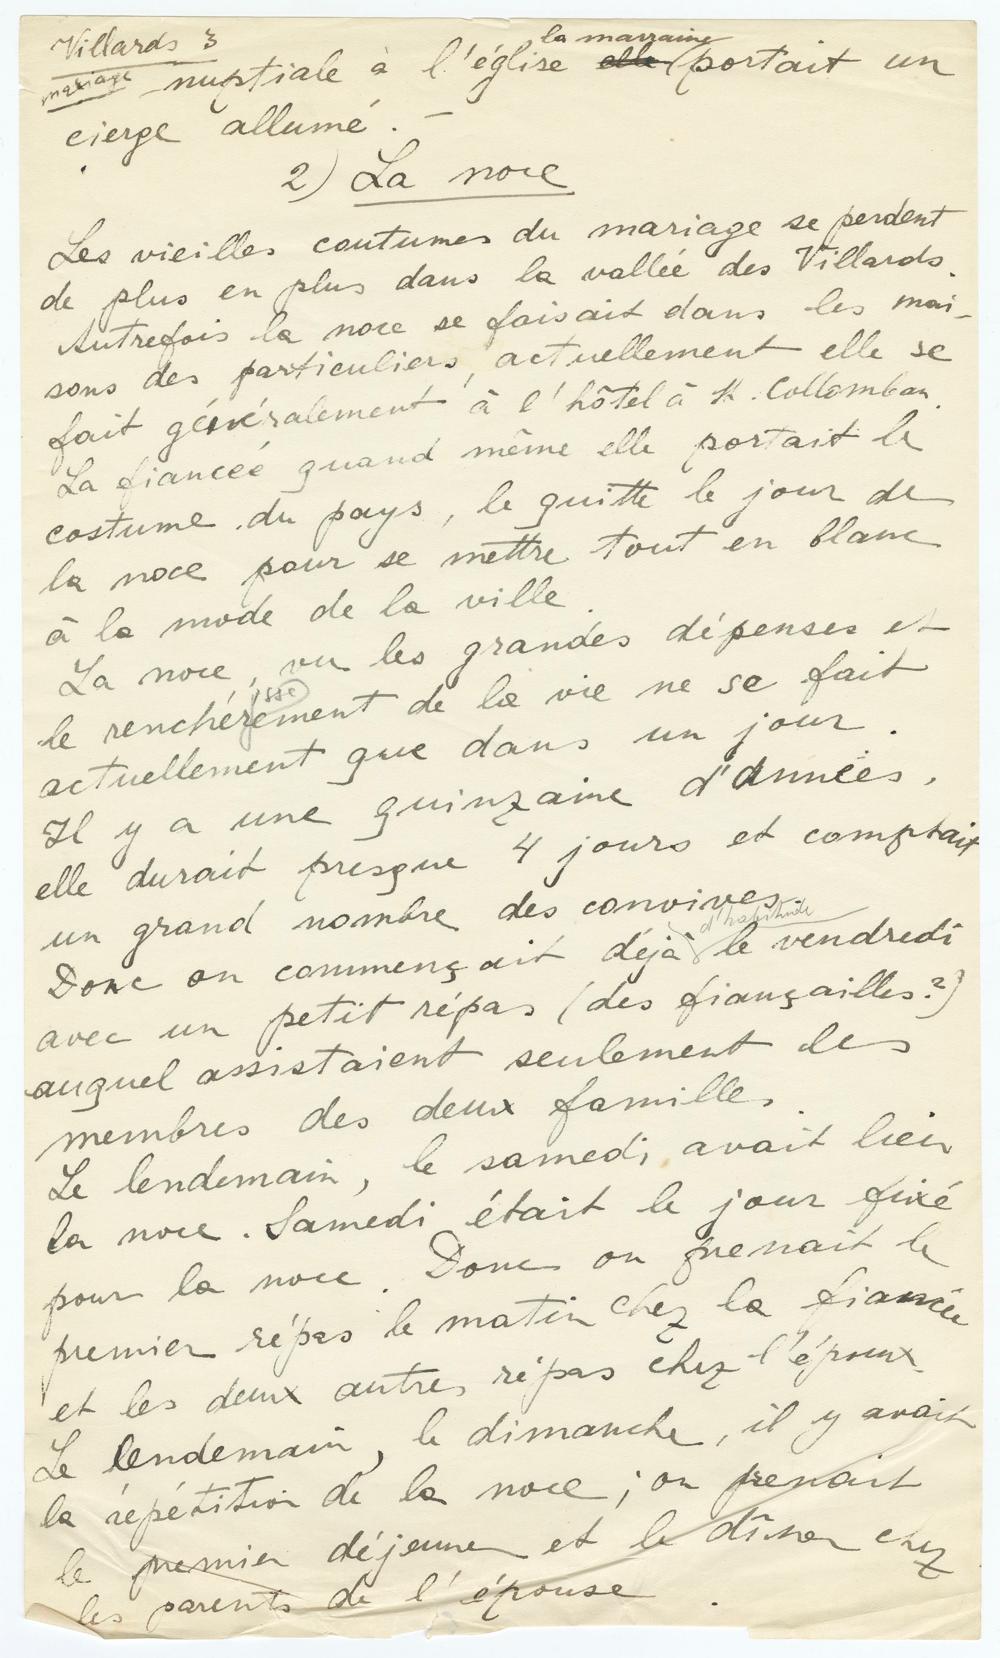 Villards 3
mariage
la marraine
nuptiale à l'église elle portait un
cierge allumé. —
2) La noce
Les vieilles coutumes du mariage se perdent
de plus en plus dans la vallée des Villards.
Autrefois la noce se faisait dans les mai-
sons des particuliers, actuellement elle se
fait généralement à l'hôtel à St. Collomban.
La fiancée quand même elle portait le
costume du pays, le quitte le jour de
la noce pour se mettre tout en blanc
à la mode de la ville.
La noce, vu les grandes dépenses et
isse
le renchérement de la vie ne se fait
actuellement que dans un jour.
Il y a une quinzaine d'années,
elle durait presque 4 jours et comptait
un grand nombre des convives.
d'habitude
Donc on commençait déjà le vendredi
avec un petit répas (des fiançailles?)
auquel assistaient seulement les
membres des deux familles.
Le lendemain, le samedi, avait lieu
la noce. Samedi était le jour fixé
pour la noce. Donc on prenait le
premier répas le matin chez la fiancée
et les deux autres répas chez l'époux.
Le lendemain, le dimanche, il y avait
la répétition de la noce; on prenait
le premier déjeuner et le dîner chez
les parents de l'épouse.